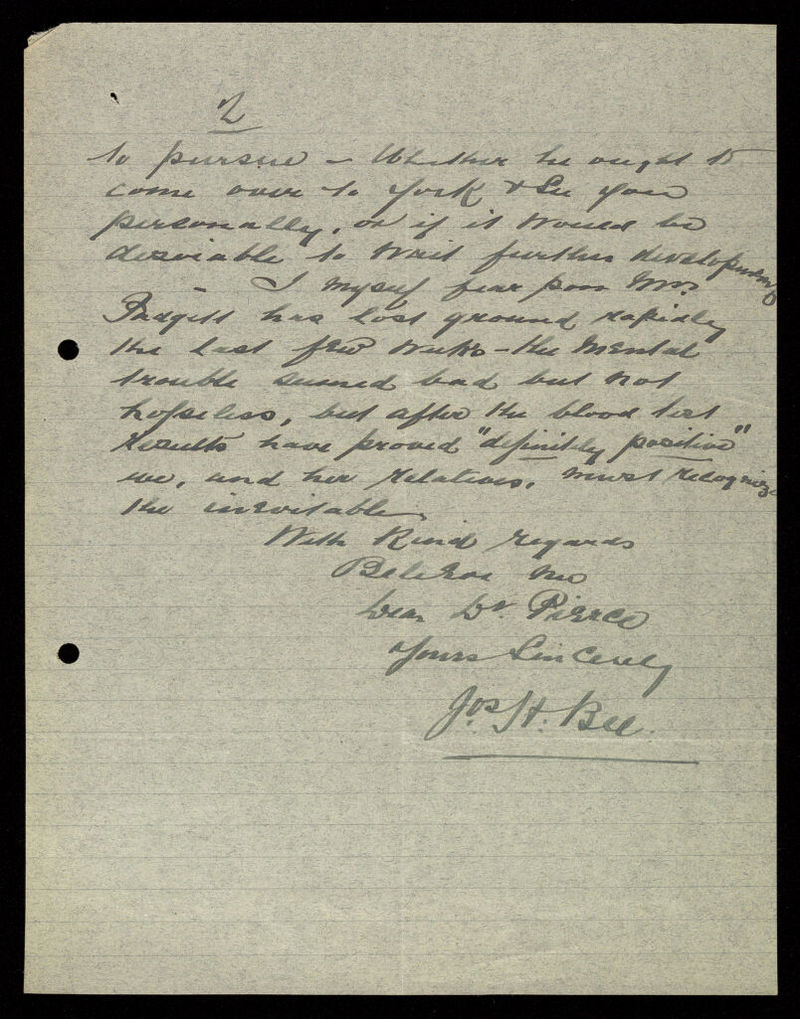 2
to pursue – Whether he ought to
come over to York & See you
personally, or if it would be
desirable to wait further developments
– I myself fear poor Mrs.
Padgett has lost ground rapidly
the last few weeks – the mental
trouble seemed bad but not
hopeless, but after the blood test
results have proved "definitly positive"
we, and her relatives, must recognize
the inevitable
With Kind regards
Believe me
Dear Dr. Pierce
Yours Sincerely
Jos H. Bee